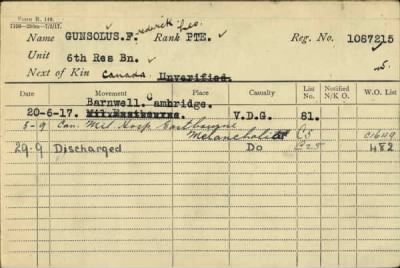 Form B. 148.
Name GUNSOLUS.F. Rank PTE. Reg. No. 1087215
Unit 6th Res Bn.
Next of Kin Canada Unverified.
Date Movement Place Casualty List No. Notified N/K O. W.O. List
Barnwell. Cambridge.
20-6-17. Mil. Eastbourne. V.D.G. 81.
5-9 Can. Mil Hosp Eastbourne
Melancholia C5 C1649
29-9 Discharged Do C25 482